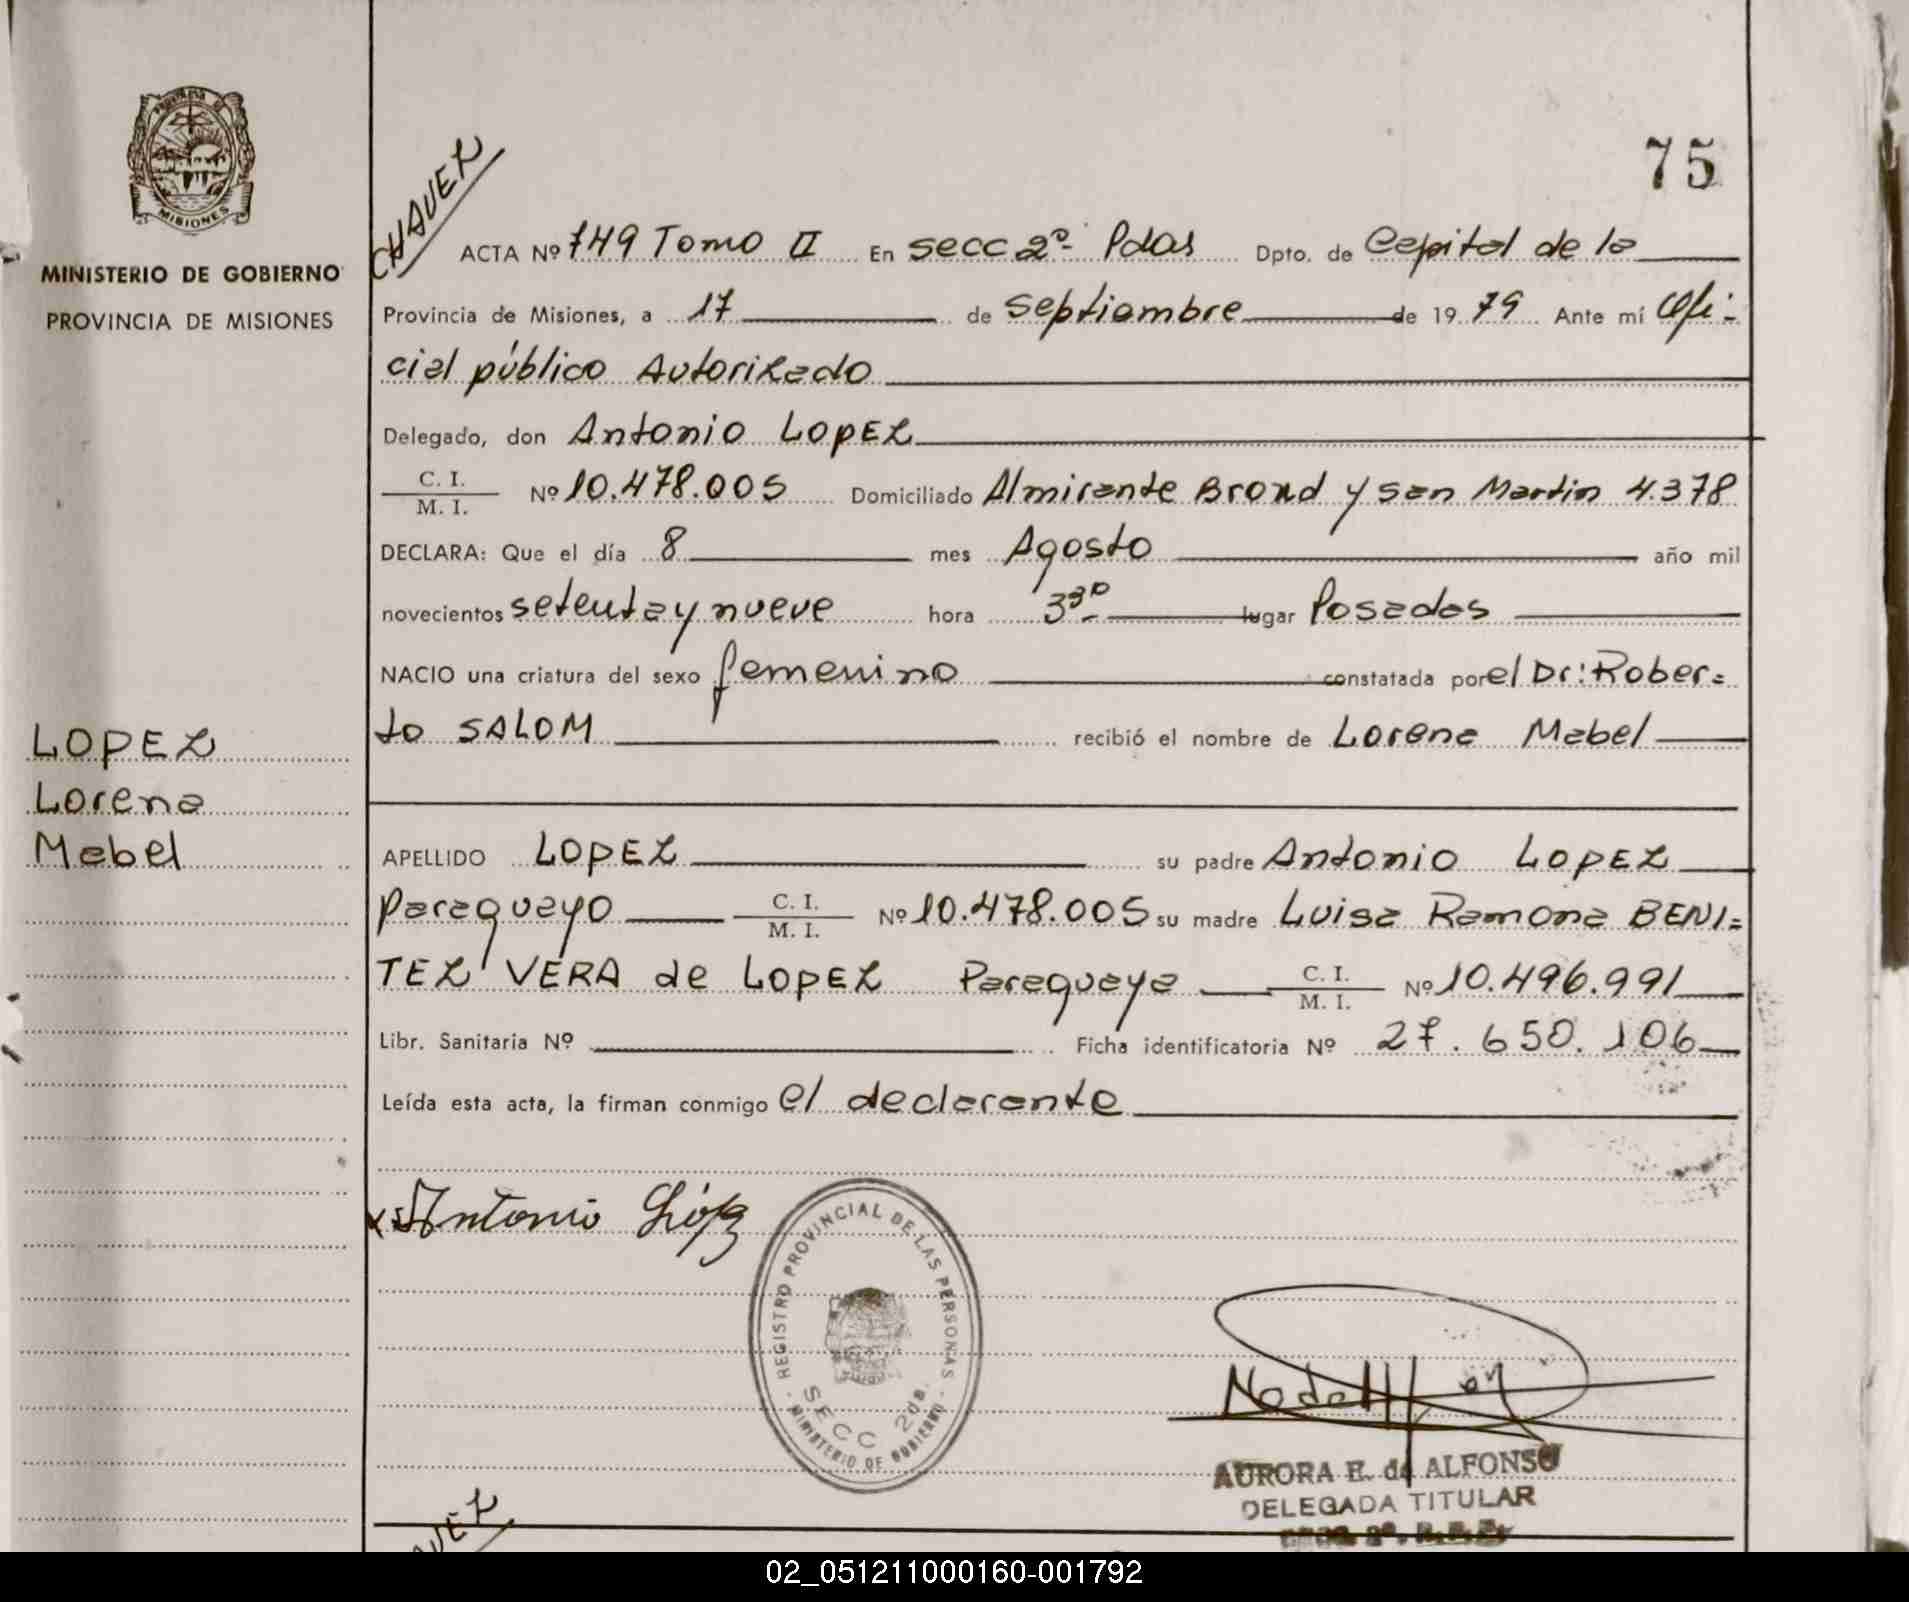 75
CHAVEZ
MISIONES
MINISTERIO DE GOBIERNO
PROVINCIA DE MISIONES
ACTA Nº 749 Tomo II En secc 2º Pdas Dpto. de Capital de la
Provincia de Misiones, a 17 de Septiembre de 1979 Ante mí Ofi-
cial público Autorizado
Delegado, don Antonio LOPEZ
C. I.
M. I.
Nº 10.478.005 Domiciliado Almirante Brond y san Martin 4.378
DECLARA: Que el día 8 mes Agosto año mil
novecientos setenta y nueve hora 3³⁰ lugar Posadas
NACIO una criatura del sexo femenino constatada por el Dr: Rober=
to SALOM recibió el nombre de Lorena Mabel
LOPEZ
Lorena
Mabel
APELLIDO LOPEZ su padre Antonio LOPEZ
Paraguayo C. I. / M. I. Nº 10.478.005 su madre Luisa Ramona BENI=
TEZ VERA de LOPEZ Paraguaya C. I. / M. I. Nº 10.496.991
Libr. Sanitaria Nº Ficha identificatoria Nº 27.650.106
Leída esta acta, la firman conmigo el declarante
Antonio López
REGISTRO PROVINCIAL DE LAS PERSONAS
SECC 2da.
MINISTERIO DE GOBIERNO
AURORA E. de ALFONSO
DELEGADA TITULAR
02_051211000160-001792